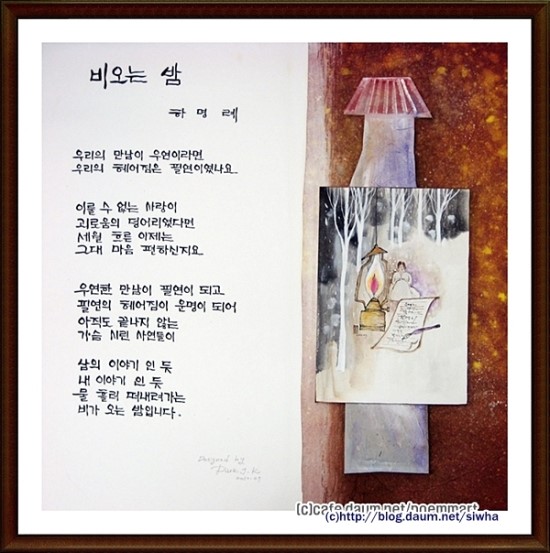 비오는 밤
하 명 례
우리의 만남이 우연이라면
우리의 헤어짐은 필연이었나요
이룰 수 없는 사랑이
괴로움의 덩어리였다면
세월 흐른 이제는
그대 마음 편하신지요
우연한 만남이 필연이 되고
필연의 헤어짐이 운명이 되어
아직도 끝나지 않는
가슴 시린 사연들이
삶의 이야기 인 듯
내 이야기 인 듯
물 흘러 떠내려가는
비가 오는 밤입니다.
Designed by
(c)cafe.daum.net/poemmart
(c)http://blog.daum.net/siwha